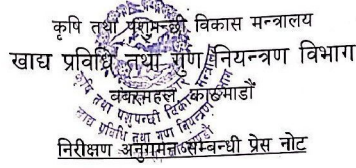 कृषि तथा पशुपन्छी विकास मन्त्रालय
खाद्य प्रविधि तथा गुण नियन्त्रण विभाग
बबरमहल, काठमाडौं
निरीक्षण अनुगमन सम्बन्धी प्रेस नोट